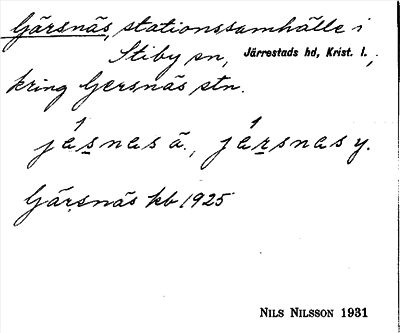 Gärsnäs, stationssamhälle i
Stiby sn, Järrestads hd, Krist. l.,
kring Gersnäs stn.
jásnas ä., jársnas y.
Gärsnäs kb 1925
NILS NILSSON 1931